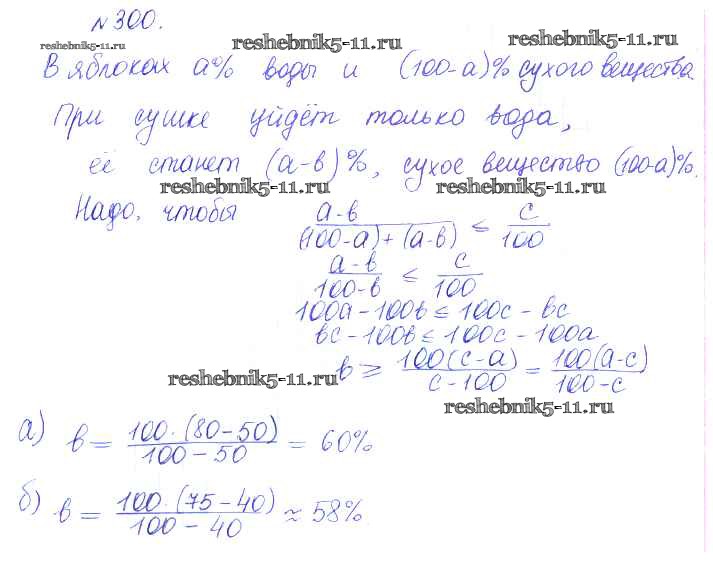 №300.
reshebnik5-11.ru reshebnik5-11.ru reshebnik5-11.ru
В яблоках a% воды и (100-a)% сухого вещества
При сушке уйдёт только вода,
её станет (a-в)%, сухое вещество (100-a)%.
reshebnik5-11.ru reshebnik5-11.ru
Надо, чтобы (a-в)/((100-a)+(a-в)) ≤ c/100
(a-в)/(100-в) ≤ c/100
100a-100в ≤ 100c-вc
вc-100в ≤ 100c-100a
reshebnik5-11.ru в ≥ 100(c-a)/(c-100) = 100(a-c)/(100-c)
reshebnik5-11.ru
а) в = 100·(80-50)/(100-50) = 60%
б) в = 100·(75-40)/(100-40) ≈ 58%